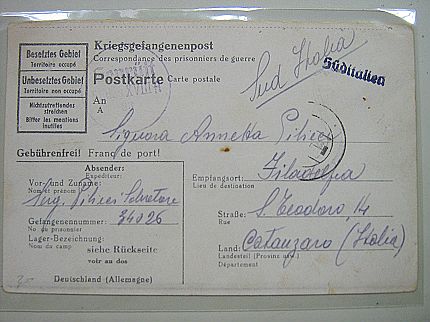 Besetztes Gebiet
Territoire occupé
Unbesetztes Gebiet
Territoire non occupé
Nichtzutreffendes
streichen
Biffer les mentions
inutiles
Kriegsgefangenenpost
Correspondance des prisonniers de guerre
Postkarte Carte postale
Sud Italia
Süditalien
An
A
Signora Annetta
Gebührenfrei! Franc de port!
Absender:
Expéditeur:
Vor- und Zuname:
Nom et prénom
Serg.
Gefangenennummer: 34026
No du prisonnier
Lager-Bezeichnung:
Nom du camp
siehe Rückseite
voir au dos
Deutschland (Allemagne)
Empfangsort: Filadelfia
Lieu de destination
Straße: S. Teodoro, 14
Rue
Catanzaro (Italia)
Land:
Landesteil (Provinz usw.)
Département